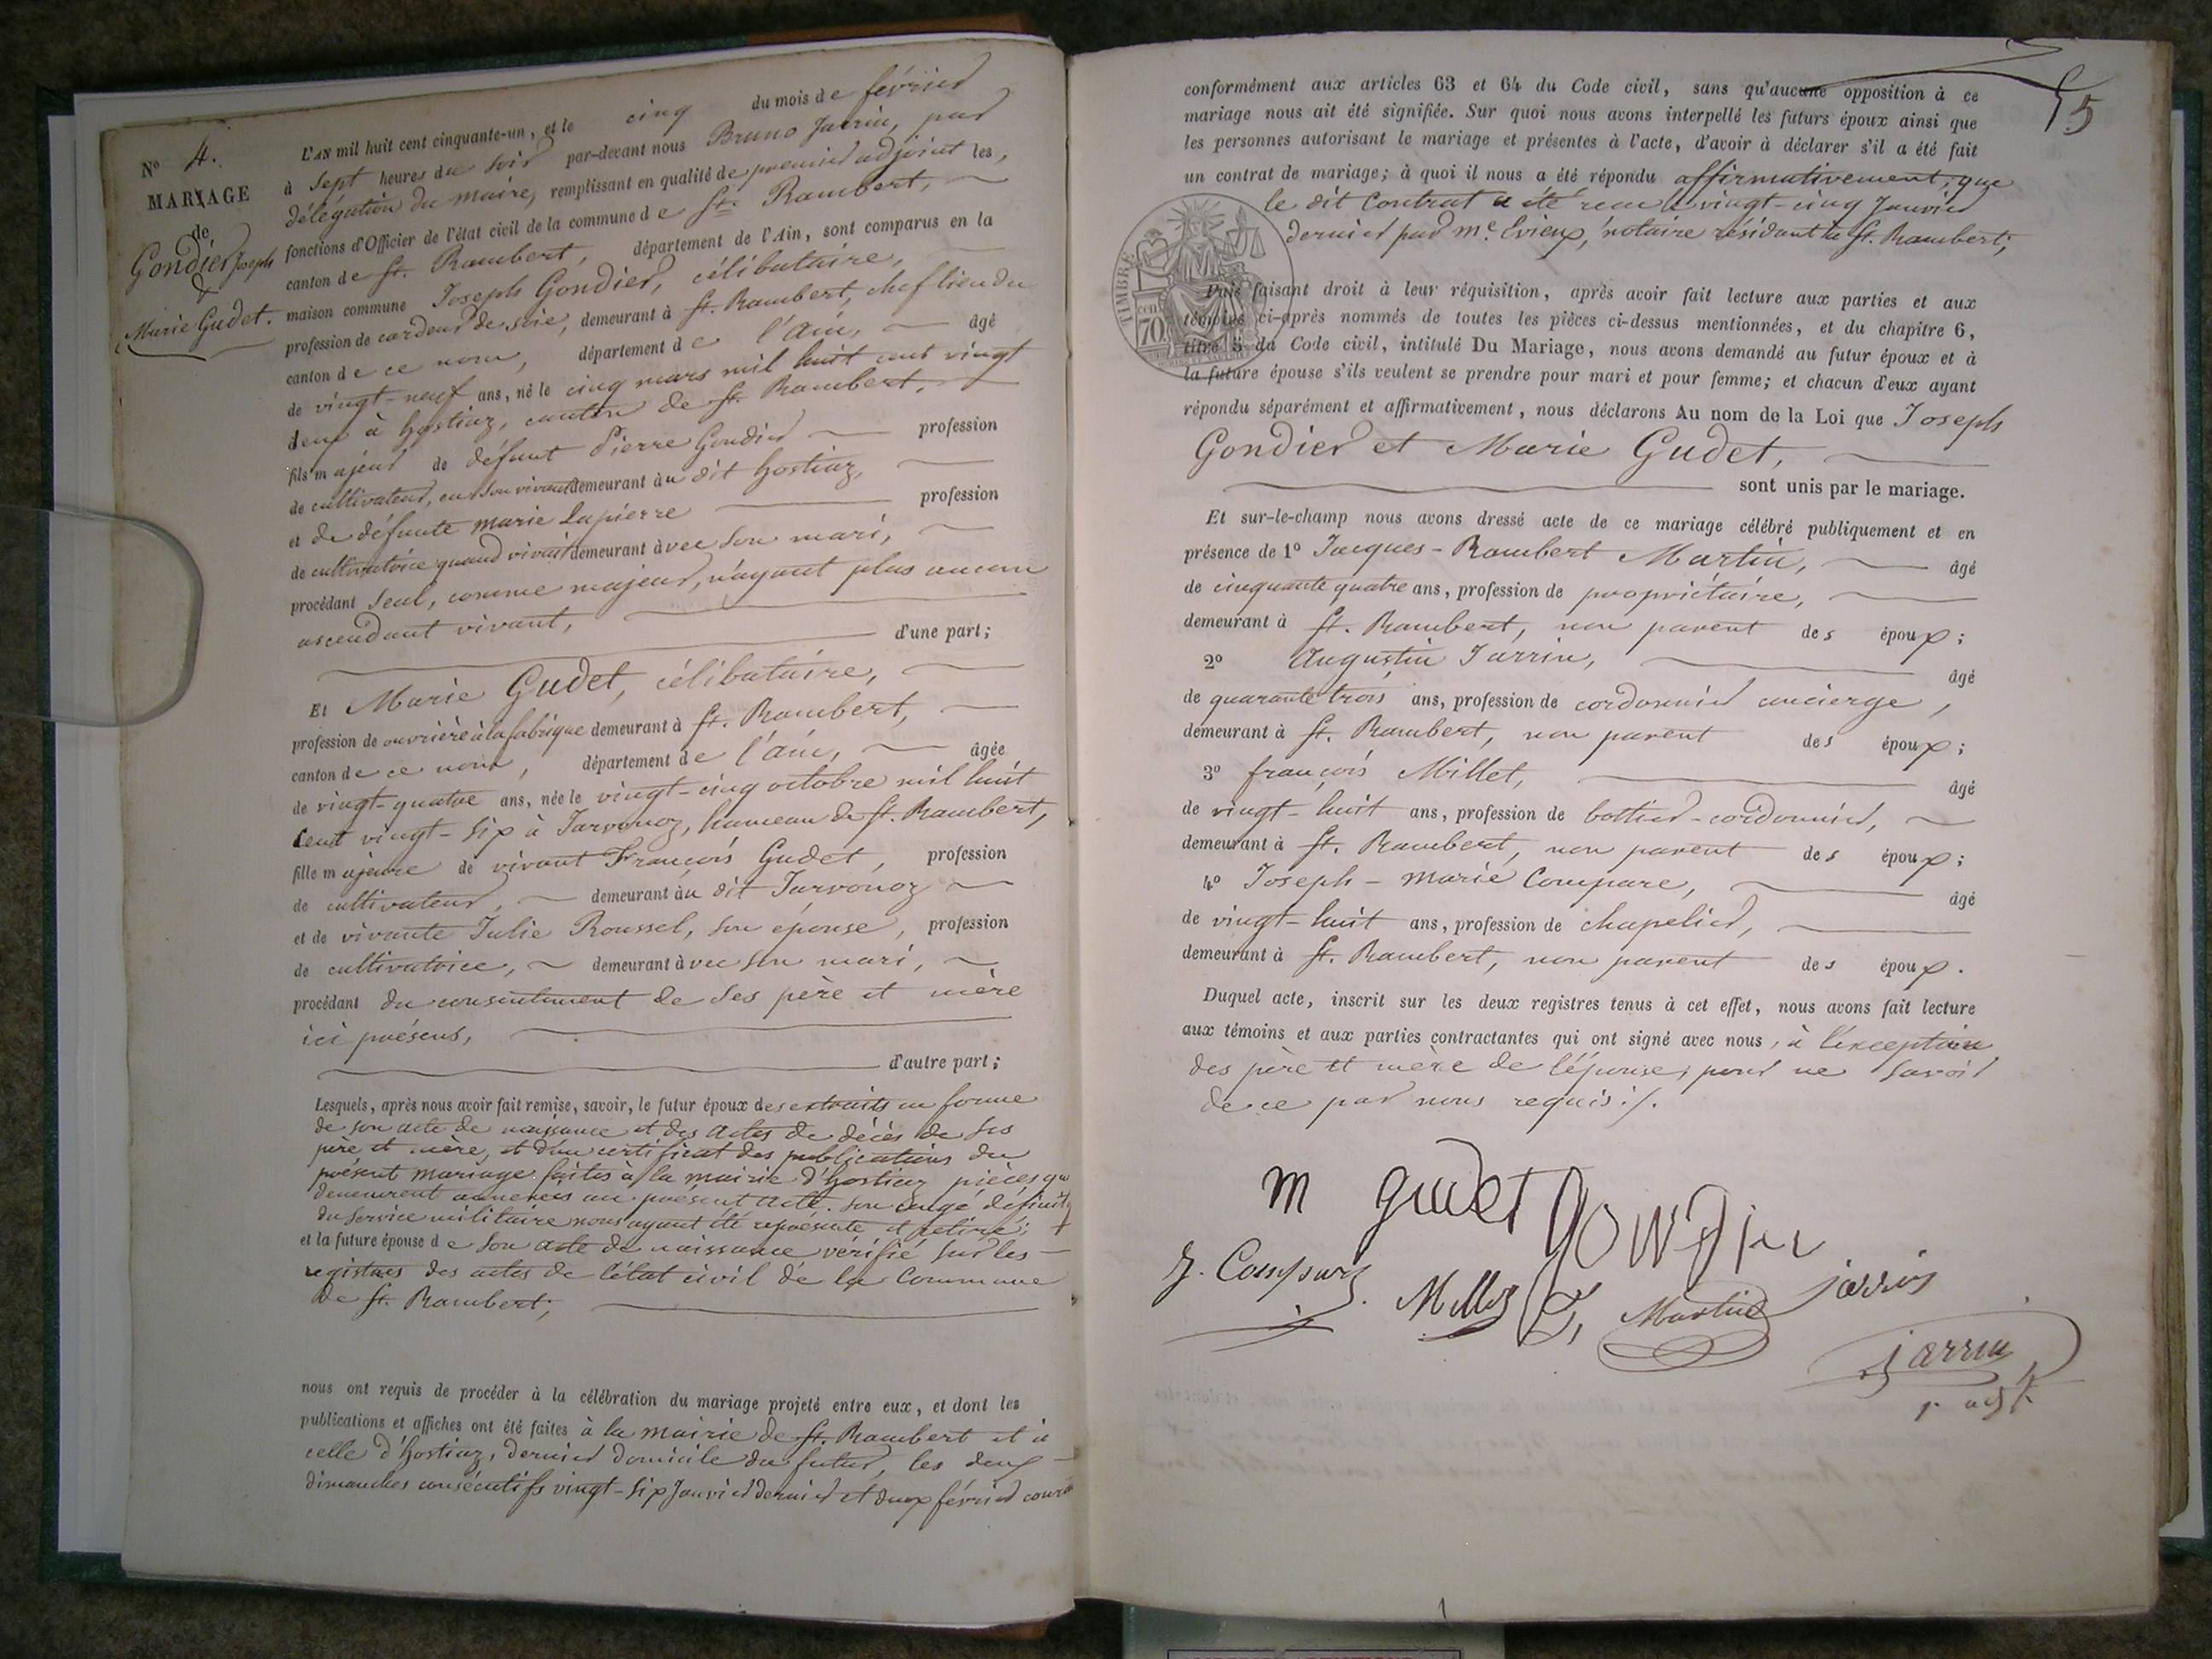 N° 4.
MARIAGE
de
Gondier Joseph
&
Marie Gudet.
L'AN mil huit cent cinquante-un, et le cinq du mois de février
à sept heures du soir par-devant nous Bruno Jarrin, par
délégation du maire, remplissant en qualité de premier adjoint les
fonctions d'Officier de l'état civil de la commune de St. Rambert,
canton de St. Rambert, département de l'Ain, sont comparus en la
maison commune Joseph Gondier, célibataire,
profession de cardeur de soie, demeurant à St. Rambert, chef lieu du
canton de ce nom, département de l'Ain, âgé
de vingt-neuf ans, né le cinq mars mil huit cent vingt
deux à hostiaz, canton de St. Rambert,
fils majeur de défunt Pierre Gondier profession
de cultivateur, en son vivant demeurant au dit hostiaz,
et de défunte marie Lapierre profession
de cultivatrice quand vivait demeurant avec son mari,
procédant seul, comme majeur, n'ayant plus aucun
ascendant vivant,
d'une part;
Et Marie Gudet, célibataire,
profession de ouvrière à la fabrique demeurant à St. Rambert,
canton de ce nom, département de l'ain, âgée
de vingt-quatre ans, née le vingt-cinq octobre mil huit
cent vingt-six à Jarvonoz, hameau de St. Rambert,
fille majeure de vivant François Gudet, profession
de cultivateur, demeurant au dit Jarvonoz
et de vivante Julie Roussel, son épouse, profession
de cultivatrice, demeurant avec son mari,
procédant du consentement de ses père et mère
ici présens,
d'autre part;
Lesquels, après nous avoir fait remise, savoir, le futur époux des extraits en forme
de son acte de naissance et des actes de décès de ses
père et mère, et d'un certificat des publications du
présent mariage faites à la mairie d'hostiaz pièces qui
demeurent annexées au présent acte. son congé définitif
du service militaire nous ayant été représenté et retiré;
et la future épouse de son acte de naissance vérifié sur les
registres des actes de l'état civil de la Commune
de St. Rambert;
nous ont requis de procéder à la célébration du mariage projeté entre eux, et dont les
publications et affiches ont été faites à la mairie de St. Rambert et à
celle d'hostiaz, dernier domicile du futur, les deux
dimanches consécutifs vingt-six Janvier dernier et deux février
conformément aux articles 63 et 64 du Code civil, sans qu'aucune opposition à ce
mariage nous ait été signifiée. Sur quoi nous avons interpellé les futurs époux ainsi que
les personnes autorisant le mariage et présentes à l'acte, d'avoir à déclarer s'il a été fait
un contrat de mariage; à quoi il nous a été répondu affirmativement, que
le dit Contrat a été recu le vingt-cinq Janvier
dernier par me. Evieux, notaire résidant à St. Rambert;
TIMBRE
70
Puis faisant droit à leur réquisition, après avoir fait lecture aux parties et aux
témoins ci-après nommés de toutes les pièces ci-dessus mentionnées, et du chapitre 6,
titre 5 du Code civil, intitulé Du Mariage, nous avons demandé au futur époux et à
la future épouse s'ils veulent se prendre pour mari et pour femme; et chacun d'eux ayant
répondu séparément et affirmativement, nous déclarons Au nom de la Loi que Joseph
Gondier et Marie Gudet,
sont unis par le mariage.
Et sur-le-champ nous avons dressé acte de ce mariage célébré publiquement et en
présence de 1° Jacques-Rambert Martin, âgé
de cinquante quatre ans, profession de propriétaire,
demeurant à St. Rambert, non parent des époux;
2° Augustin Jarrin, âgé
de quarante trois ans, profession de cordonnier concierge,
demeurant à St. Rambert, non parent des époux;
3° françois Millet, âgé
de vingt-huit ans, profession de bottier-cordonnier,
demeurant à St. Rambert, non parent des époux;
4° Joseph-Marie Compare, âgé
de vingt-huit ans, profession de chapelier,
demeurant à St. Rambert, non parent des époux.
Duquel acte, inscrit sur les deux registres tenus à cet effet, nous avons fait lecture
aux témoins et aux parties contractantes qui ont signé avec nous, à l'exception
des père et mère de l'épouse, pour ne savoir
de ce par nous requis./.
m gudet gondier
J. Compare Millet Martin jarrin
jarrin